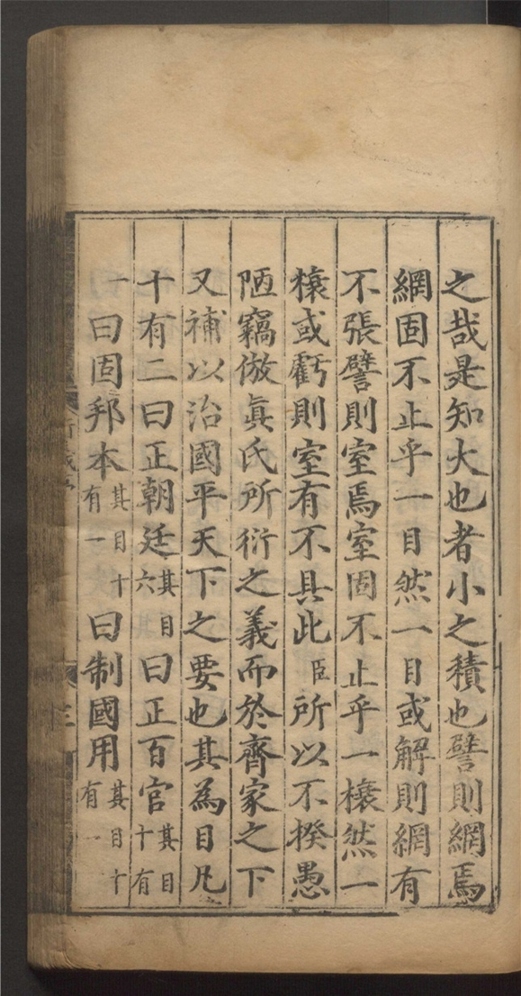 之哉是知大也者小之積也譬則網焉
網固不止乎一目然一目或解則網有
不張譬則室焉室固不止乎一榱然一
榱或虧則室有不具此臣所以不揆愚
陋竊倣眞氏所衍之義而於齊家之下
又補以治國平天下之要也其為目凡
十有二曰正朝廷其目六曰正百官其目十有
一曰固邦本其目十有一曰制國用其目十有一